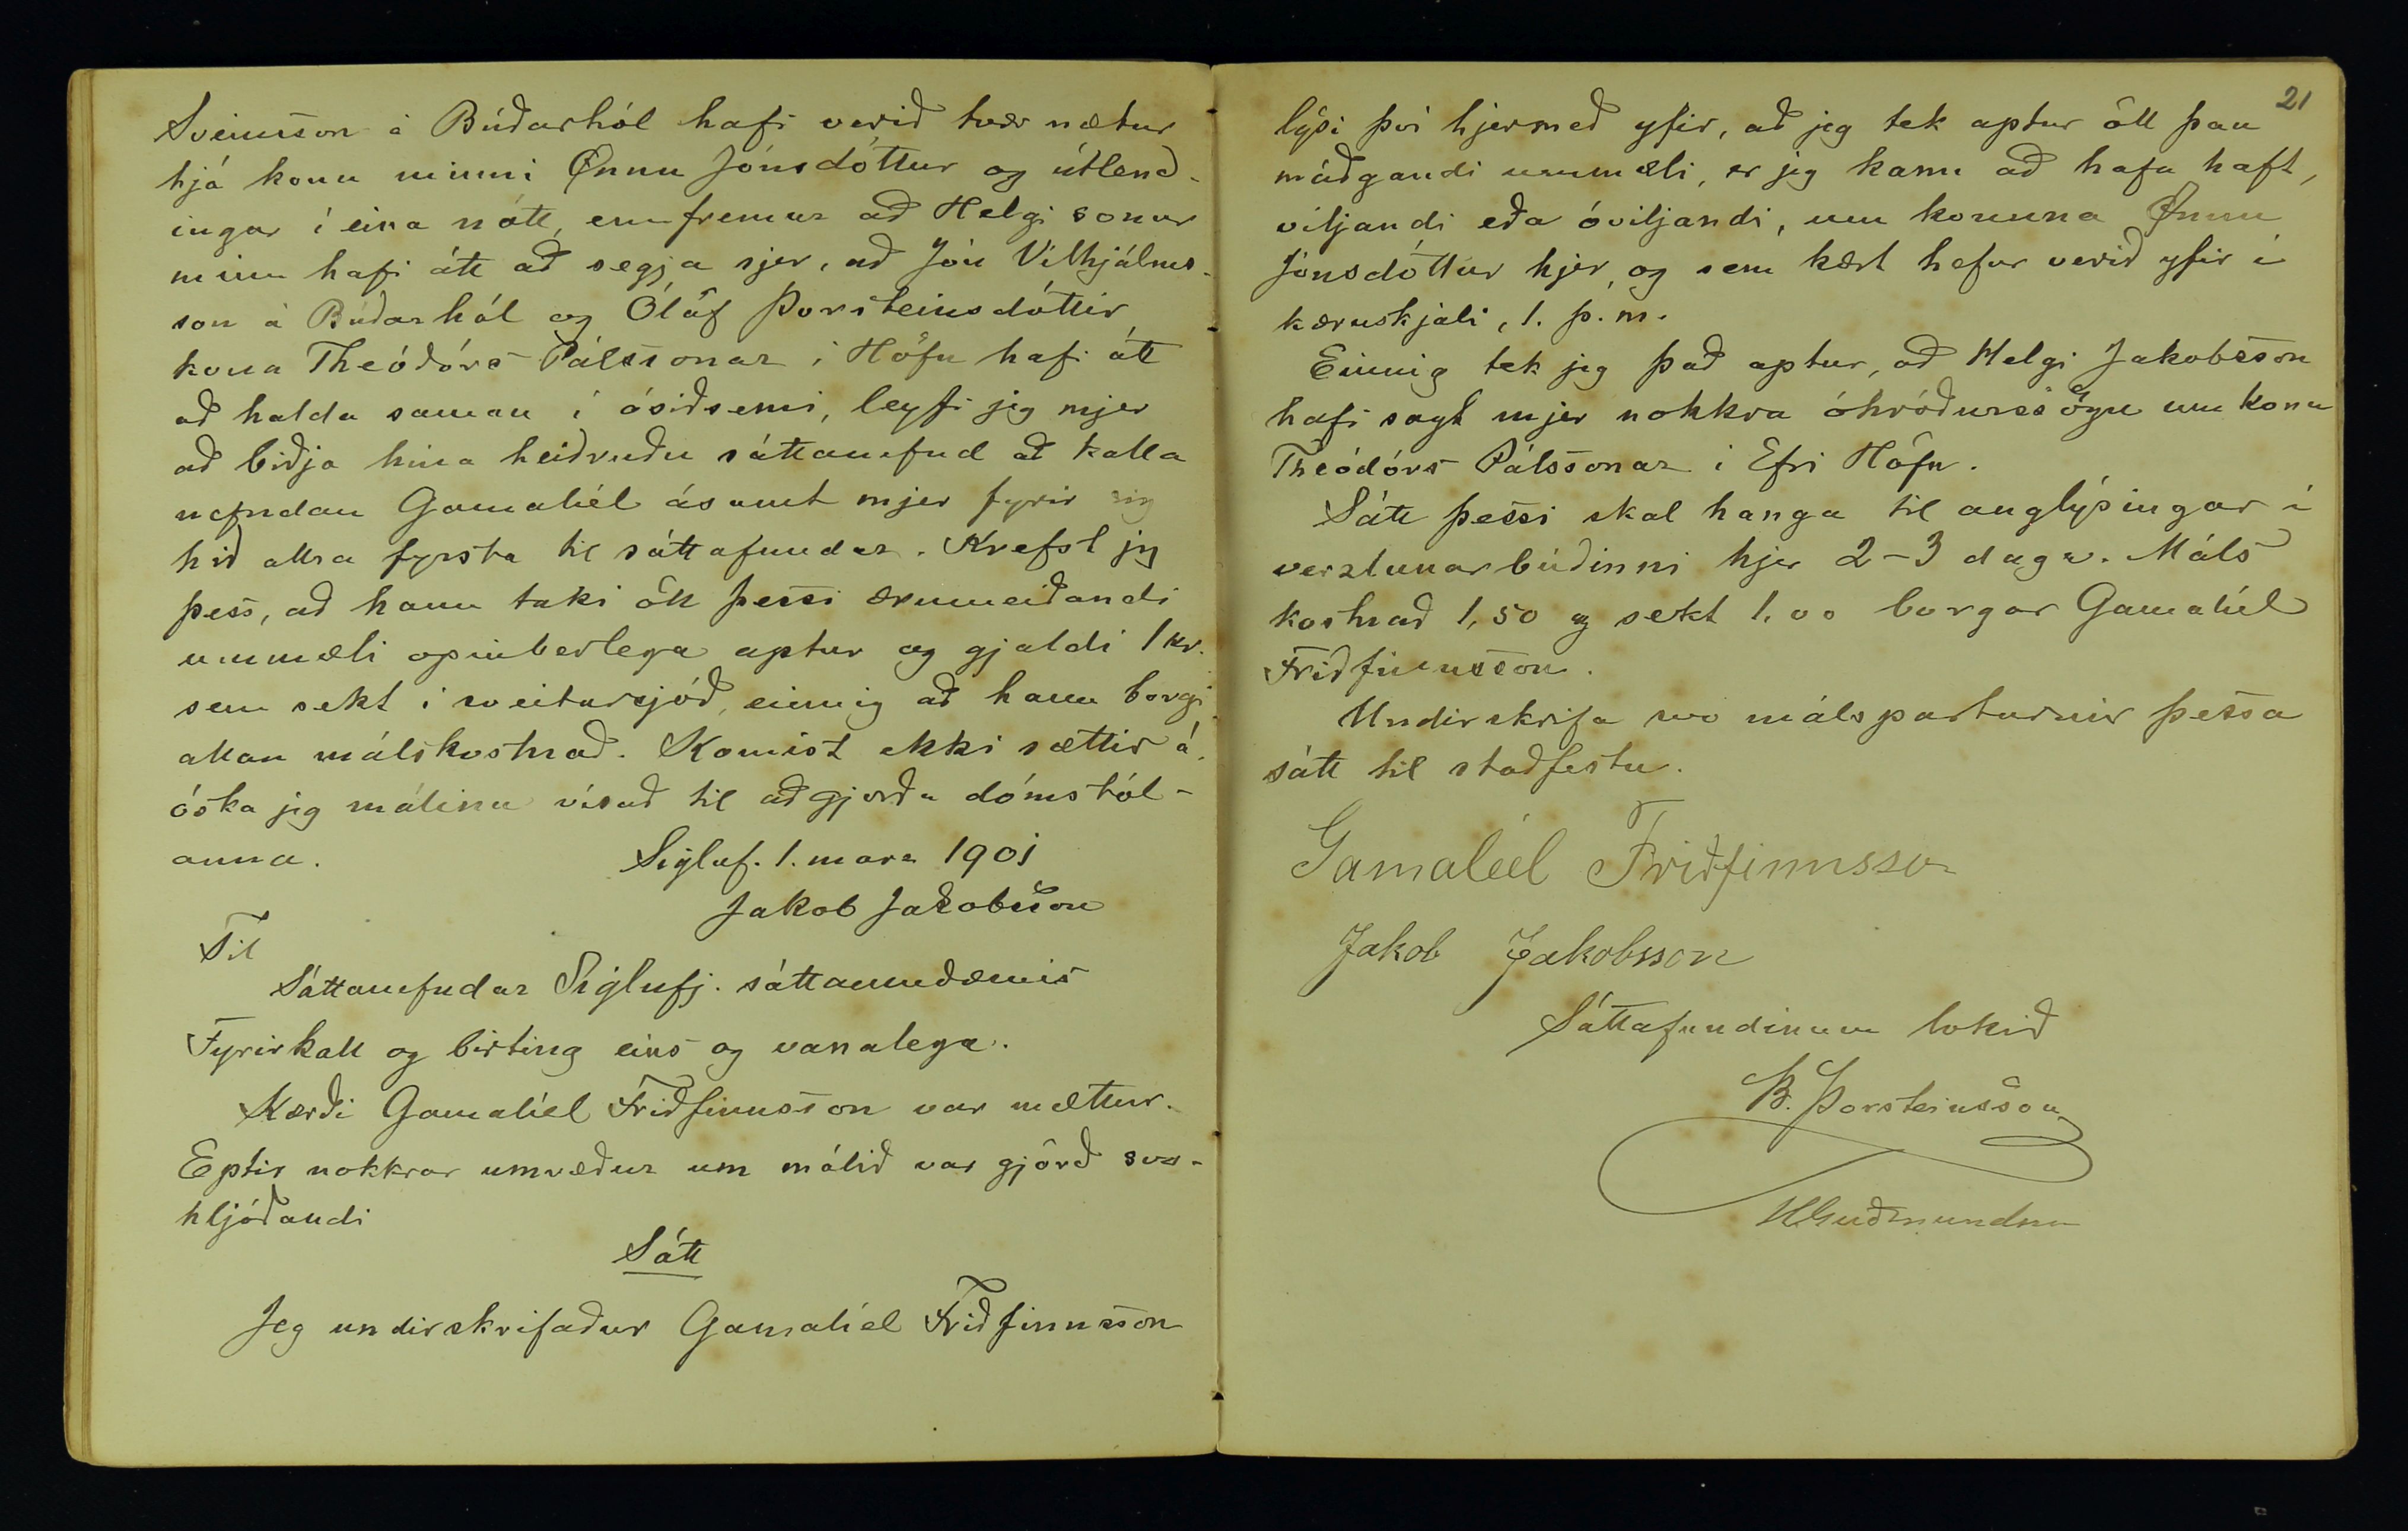 Sveinsson á Búðarhól hafi verið tvær nætur
hjá konu minni Önnu Jónsdóttur og útlend-
ingar í eina nótt, ennfremur að Helgi sonur
minn hafi átt að segja sjer, að Jón Vilhjálms-
son á Búðarhól og Ólöf Þorsteinsdóttir
kona Theódórs Pálssonar í Höfn hafi átt
að halda saman í ósiðsemi, leyfi jeg mjer
að biðja hina heiðruðu sáttanefnd að kalla
nefndan Gamalíel ásamt mjer fyrir sig
hið allra fyrsta til sáttafundar. Krefst jeg
þess, að hann taki öll þessi ærumeiðandi
ummæli opinberlega aptur og gjaldi 1 kr.
sem sekt í sveitarsjóð, einnig að hann borgi
allan málskostnað. Komist ekki sættir á,
óska jeg málinu vísað til aðgjörða dómstól-
anna.
Sigluf. 1. mars 1901
Jakob Jakobsson
Til
Sáttanefndar Siglufj. sáttaumdæmis
Fyrirkall og birting eins og vanalega.
Kærði Gamalíel Friðfinnsson var mættur.
Eptir nokkrar umræður um málið var gjörð svo-
hljóðandi
Sátt
Jeg undirskrifaður Gamalíel Friðfinnsson
21
lýsi því hjermeð yfir, að jeg tek aptur öll þau
móðgandi ummæli, er jeg kann að hafa haft,
viljandi eða óviljandi, um konuna Önnu
Jónsdóttur hjer, og sem kært hefur verið yfir í
kæruskjali, 1. þ.m.
Einnig tek jeg það aptur, að Helgi Jakobsson
hafi sagt mjer nokkra óhróðurssögu um konu
Theódórs Pálssonar í Efri Höfn.
Sátt þessi skal hanga til auglýsingar í
verzlunarbúðinni hjer 2-3 daga. Máls
kostnað 1,50 og sekt 1,00 borgar Gamalíel
Friðfinnsson.
Undirskrifa svo málspartarnir þessa
sátt til staðfestu.
Gamalíel Friðfinnsson
Jakob Jakobsson
Sáttafundinum lokið
B. Þorsteinsson
HGuðmundsson